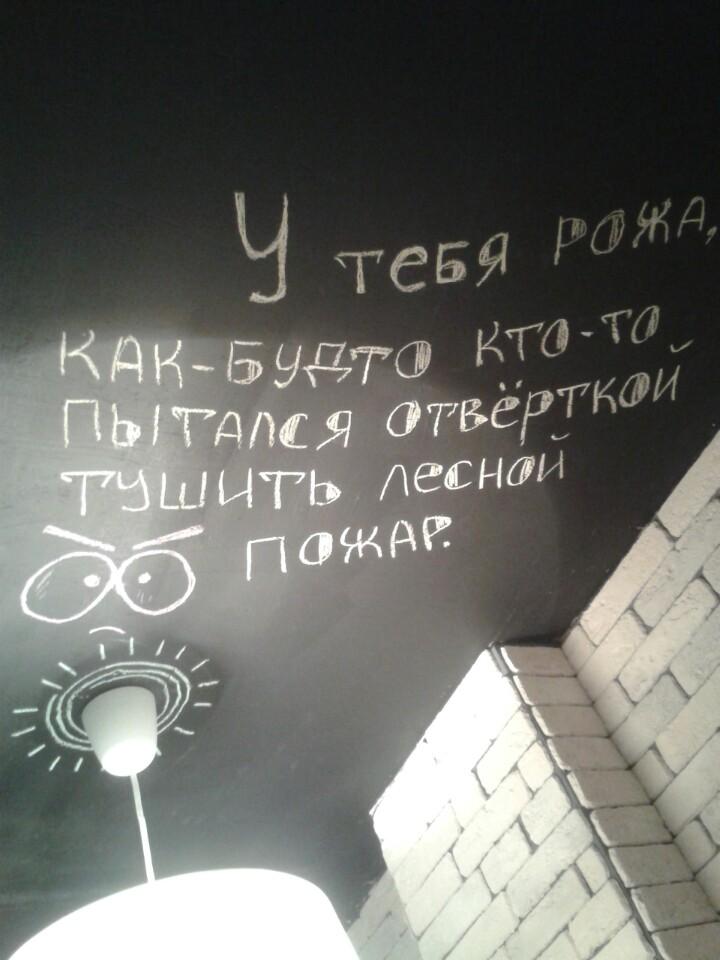 У тебя рожа,
как-будто кто-то
пытался отвёрткой
тушить лесной
пожар.